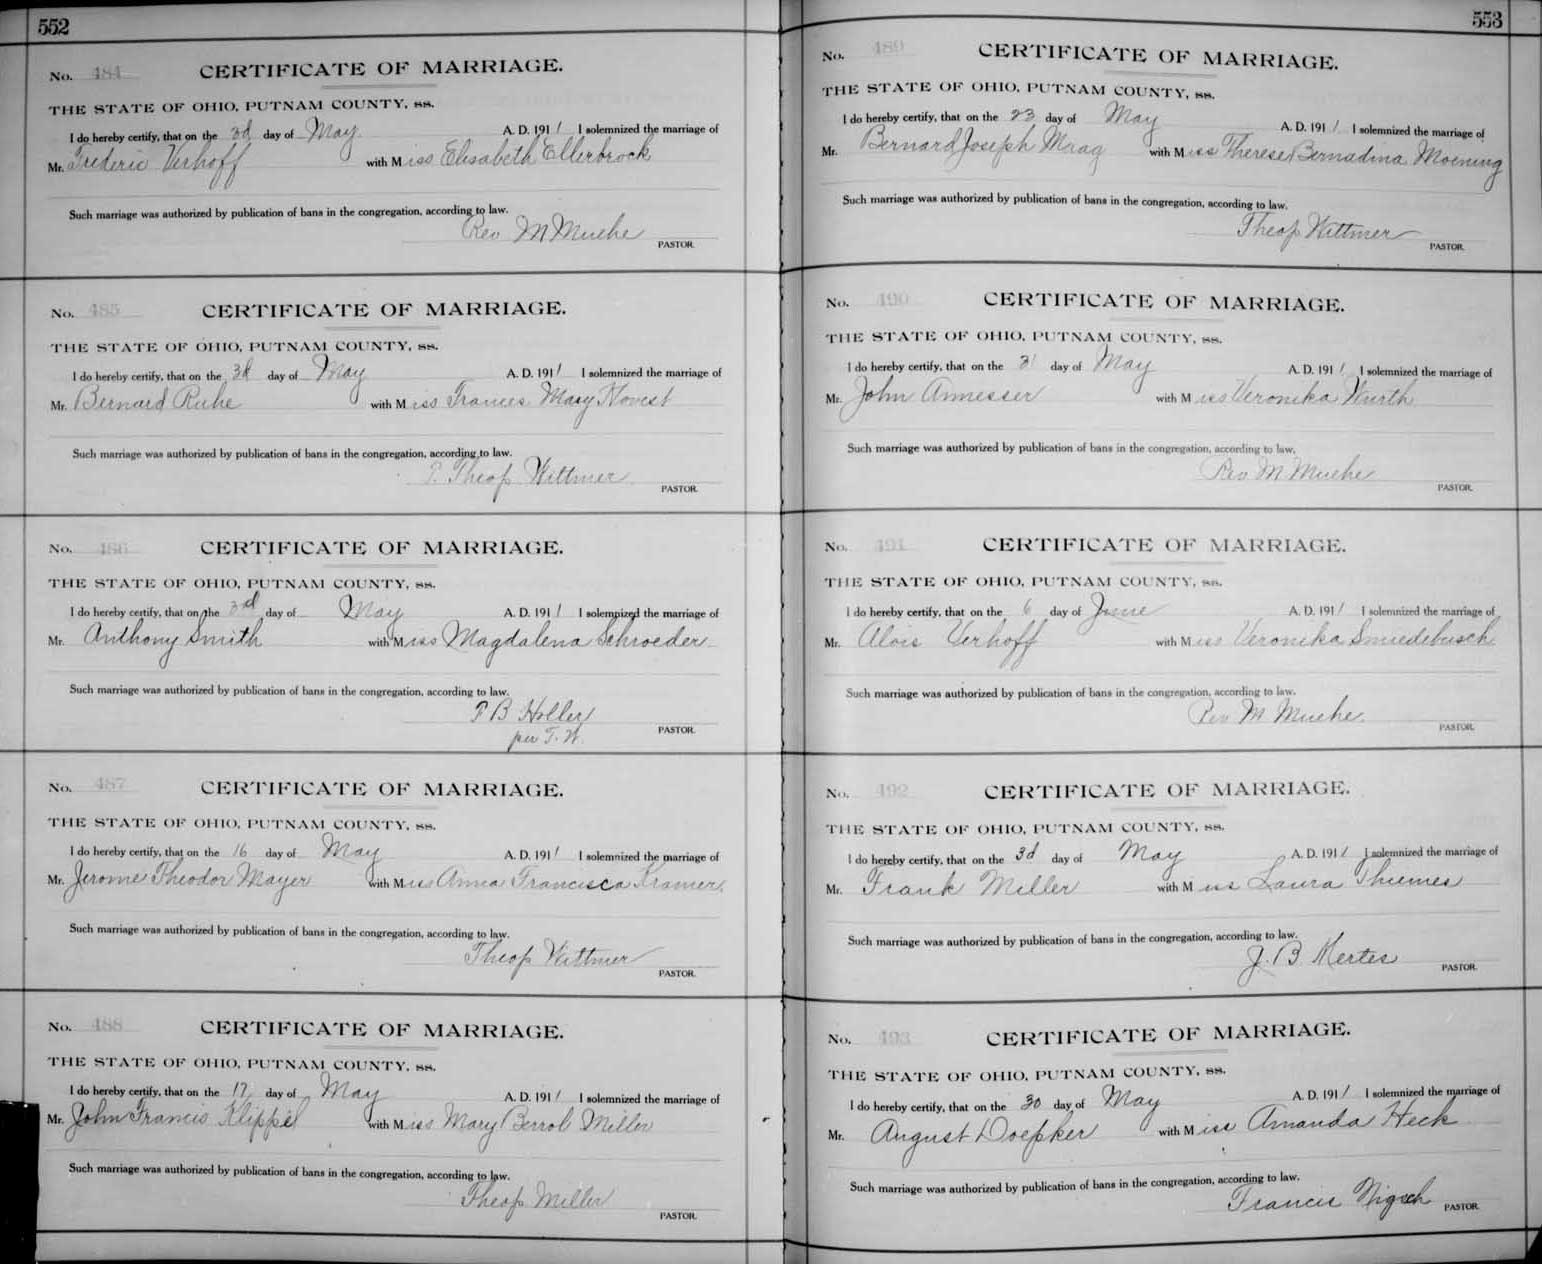 552
No. 484 CERTIFICATE OF MARRIAGE.
THE STATE OF OHIO, PUTNAM COUNTY, ss.
I do hereby certify, that on the 3d day of May A. D. 1911 I solemnized the marriage of
Mr. Frederic Verhoff with Miss Elisabeth Ellerbrock
Such marriage was authorized by publication of bans in the congregation, according to law.
Rev M Muehe
PASTOR.
No. 485 CERTIFICATE OF MARRIAGE.
THE STATE OF OHIO, PUTNAM COUNTY, ss.
I do hereby certify, that on the 3d day of May A. D. 1911 I solemnized the marriage of
Mr. Bernard Ruhe with Miss Frances Mary Hovest
Such marriage was authorized by publication of bans in the congregation, according to law.
P. Theop Wittmer
PASTOR.
No. 486 CERTIFICATE OF MARRIAGE.
THE STATE OF OHIO, PUTNAM COUNTY, ss.
I do hereby certify, that on the 3rd day of May A. D. 1911 I solemnized the marriage of
Mr. Anthony Smith with Miss Magdalena Schroeder
Such marriage was authorized by publication of bans in the congregation, according to law.
P B Holler
per T. W.
PASTOR.
No. 487 CERTIFICATE OF MARRIAGE.
THE STATE OF OHIO, PUTNAM COUNTY, ss.
I do hereby certify, that on the 16 day of May A. D. 1911 I solemnized the marriage of
Mr. Jerome Theodor Mayer with Miss Anna Francisca Kramer
Such marriage was authorized by publication of bans in the congregation, according to law.
Theop Wittmer
PASTOR.
No. 488 CERTIFICATE OF MARRIAGE.
THE STATE OF OHIO, PUTNAM COUNTY, ss.
I do hereby certify, that on the 17 day of May A. D. 1911 I solemnized the marriage of
Mr. John Francis Klippel with Miss Mary Miller
Such marriage was authorized by publication of bans in the congregation, according to law.
Theop Miller
PASTOR.
553
No. 489 CERTIFICATE OF MARRIAGE.
THE STATE OF OHIO, PUTNAM COUNTY, ss.
I do hereby certify, that on the 23 day of May A. D. 1911 I solemnized the marriage of
Mr. Bernard Joseph Mrag with Miss Therese Bernadina Moening
Such marriage was authorized by publication of bans in the congregation, according to law.
Theop Wittmer
PASTOR.
No. 490 CERTIFICATE OF MARRIAGE.
THE STATE OF OHIO, PUTNAM COUNTY, ss.
I do hereby certify, that on the 31 day of May A. D. 1911 I solemnized the marriage of
Mr. John Annesser with Miss Veronika Wurth
Such marriage was authorized by publication of bans in the congregation, according to law.
Rev M Muehe
PASTOR.
No. 491 CERTIFICATE OF MARRIAGE.
THE STATE OF OHIO, PUTNAM COUNTY, ss.
I do hereby certify, that on the 6 day of June A. D. 1911 I solemnized the marriage of
Mr. Alois Verhoff with Miss Veronika Smiedebusch
Such marriage was authorized by publication of bans in the congregation, according to law.
Rev M Muehe
PASTOR.
No. 492 CERTIFICATE OF MARRIAGE.
THE STATE OF OHIO, PUTNAM COUNTY, ss.
I do hereby certify, that on the 3d day of May A. D. 1911 I solemnized the marriage of
Mr. Frank Miller with Miss Laura Thiemes
Such marriage was authorized by publication of bans in the congregation, according to law.
J. B Mertes
PASTOR.
No. 493 CERTIFICATE OF MARRIAGE.
THE STATE OF OHIO, PUTNAM COUNTY, ss.
I do hereby certify, that on the 30 day of May A. D. 1911 I solemnized the marriage of
Mr. August Doepker with Miss Amanda Heck
Such marriage was authorized by publication of bans in the congregation, according to law.
Francis Nigsch
PASTOR.